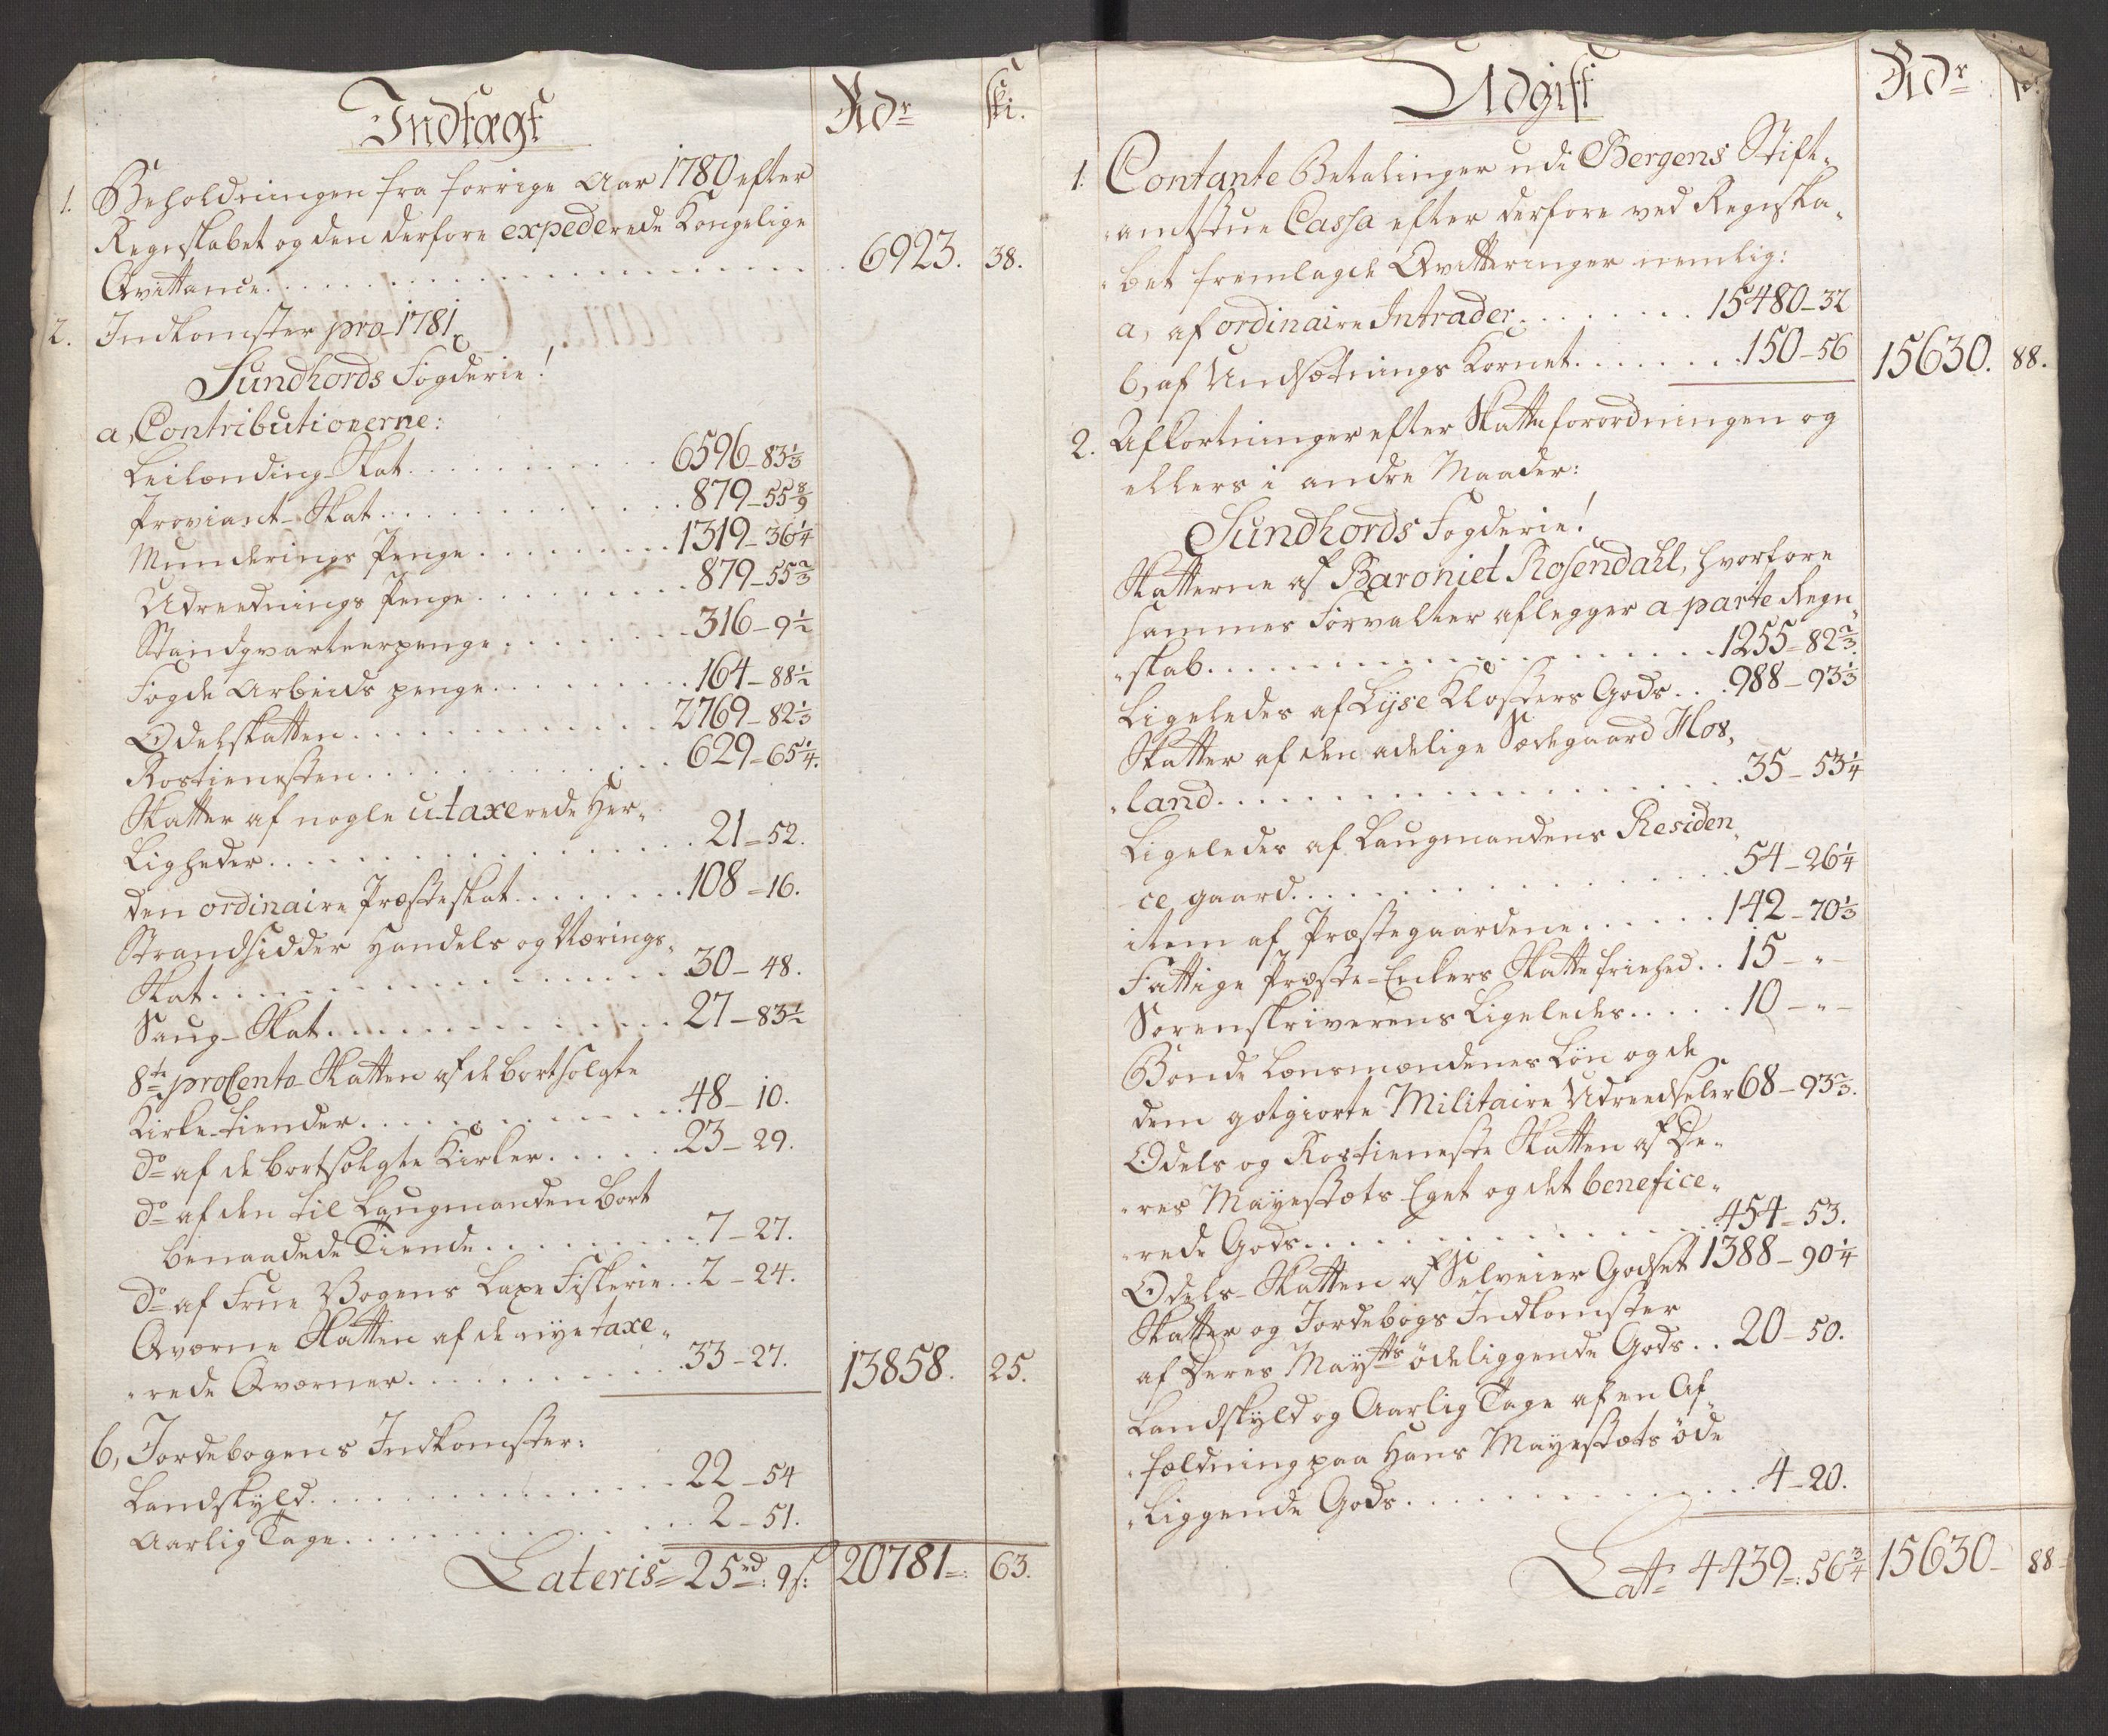 Indtægt
Rdr
ski.
1. Beholdningen fra forrige Aar 1780 efter
Regnskabet og den derfore expederede Kongelige
Qvittance . . . 6923. 38.
2. Indkomster pro 1781,
Sundhords Fogderie!
a, Contributionerne:
Leilænding-Skat . . . 6596-83⅓
Proviant-Skat . . . 879-55 8/9
Munderings Penge . . . 1319-36¼
Udreednings Penge . . . 879-55⅔
Standqvarteerpenge . . . 316-9½
Fogde Arbeids penge . . . 164-88½
Odelskatten . . . 2769-82⅓
Rostienesten . . . 629-65¼.
Skatter af nogle utaxerede Her-
Ligheder . . . 21-52.
den ordinaire Præsteskat . . . 108-16.
Strandsidder Handels og Nærings-
Skat . . . 30-48.
Saug-Skat . . . 27-83½
8te proCento Skatten af de bortsolgte
Kirke-tiender . . . 48-10.
do af de bortsolgte Kirker . . . 23-29.
do af den til Laugmanden bort
benaadede Tiende . . . 7-27.
do af Frue Bogens Laxe Fiskerie . . 2-24.
Qværne Skatten af de nye taxe-
-rede Qværner . . . 33-27. 13858. 25.
b, Jordebogens Indkomster:
Landskyld . . . 22-54
Aarlig Tage . . . 2-51.
Lateris 25rd: 9s: 20781=: 63.
Udgift
Rdr
1. Contante Betalinger udi Bergens Stift-
-amtstue Cassa efter derfore ved Regnska-
-bet fremlagde Qvitteringer nemlig:
a, af ordinaire Intrader . . . 15480-32
b, af Undsætnings Kornet . . . 150-56 15630. 88.
2. Afkortninger efter Skatteforordningen og
ellers i andre Maader:
Sundhords Fogderie!
Skatterne af Baroniet Rosendahl, hvorfore
sammes Forvalter aflegger a parte Regn-
-skab . . . 1255-82⅔.
Ligeledes af Lyse Klosters Gods . . 988-93⅓
Skatter af den adelige Sædegaard Hos-
-land . . . 35-53¼
Ligeledes af Laugmandens Residen-
ce gaard . . . 54-26¼
item af Præstegaardene . . . 142-70⅓
Fattige Præste-Enkers Skattefriehed . . 15-"-
Sorenskriverens Ligeledes . . . 10-"-
Bonde Lænsmændenes Løn og de
dem gotgiorte Militaire Udreedseler 68-93⅔.
Odels og Rostieneste Skatten af De-
-res Mayestæts Eget og det benefice-
-rede Gods . . . 454-53.
Odels-Skatten af Selveier Godset 1388-90¼
Skatter og Jordebogs Indkomster
af Deres Maytts ödeliggende Gods . . 20-50.
Landskyld og Aarlig Tage af en Af-
-fældning paa Hans Mayestæts öde
-liggende Gods . . . 4-20.
Latr 4439=: 56¾ 15630- 88-